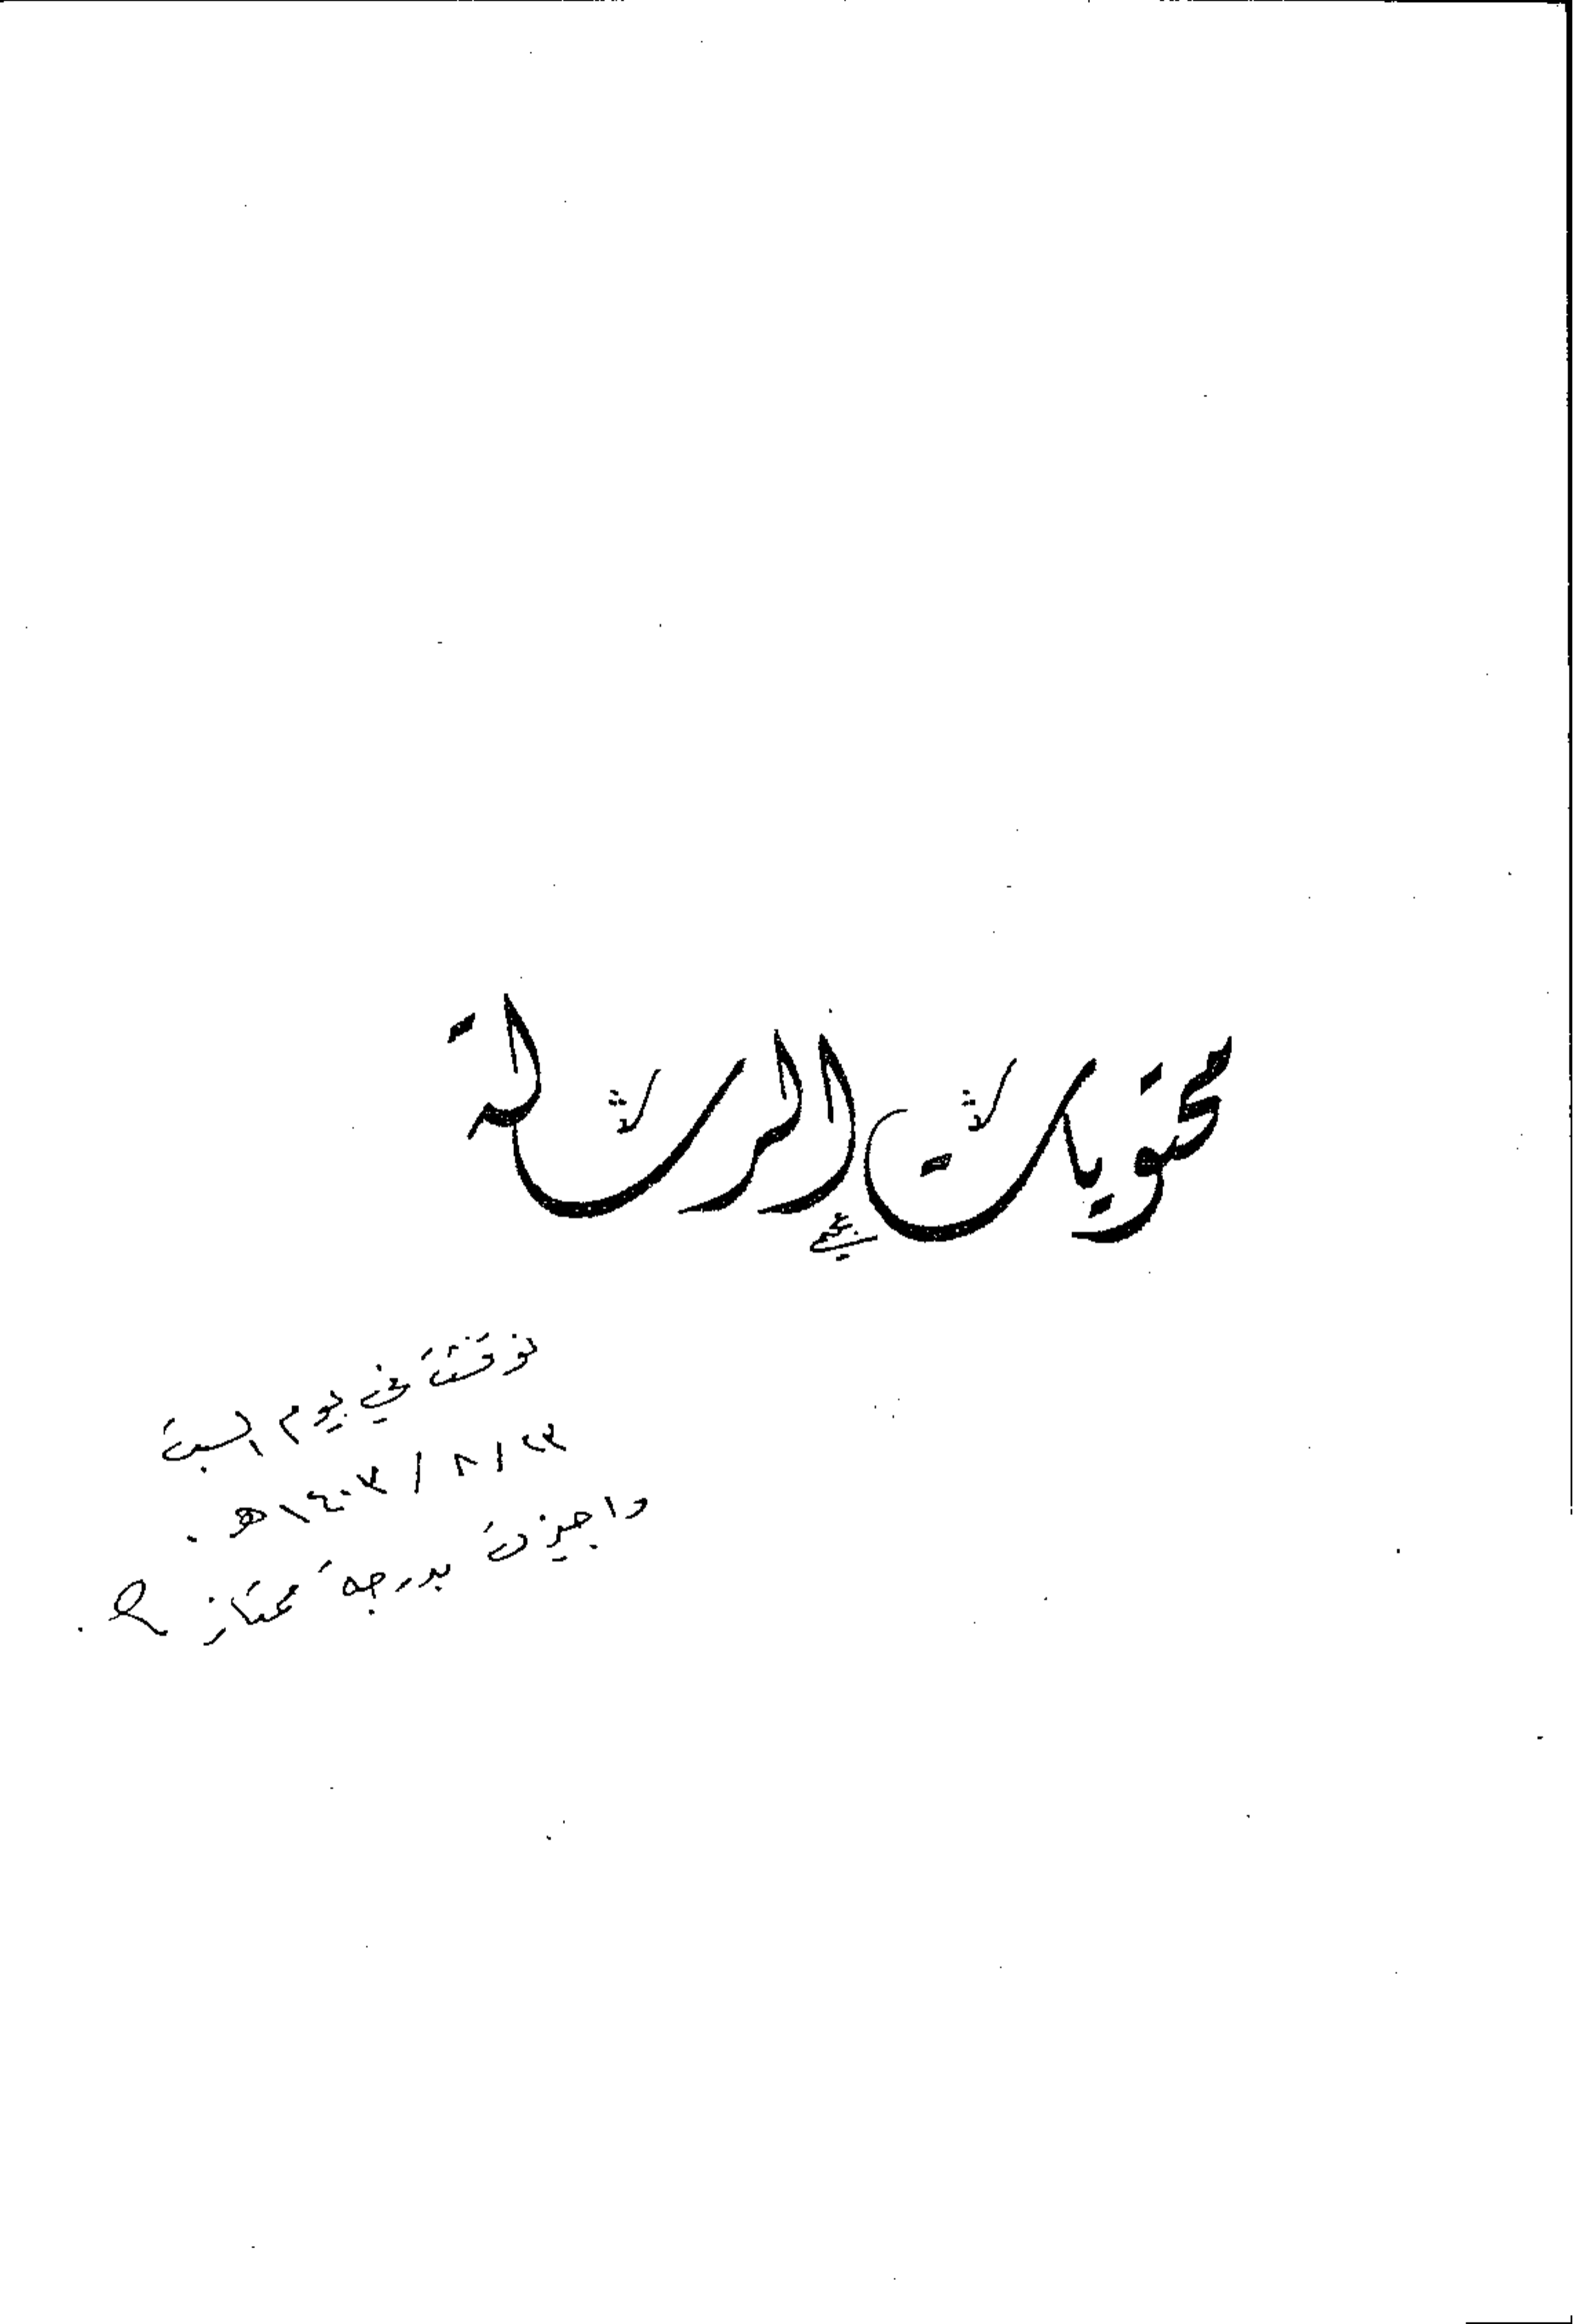 محتويات الرسالة
نوقشت في يوم السبت
٢٢/٨/١٤٠٣هـ .
واجيزت بدرجة ممتاز .